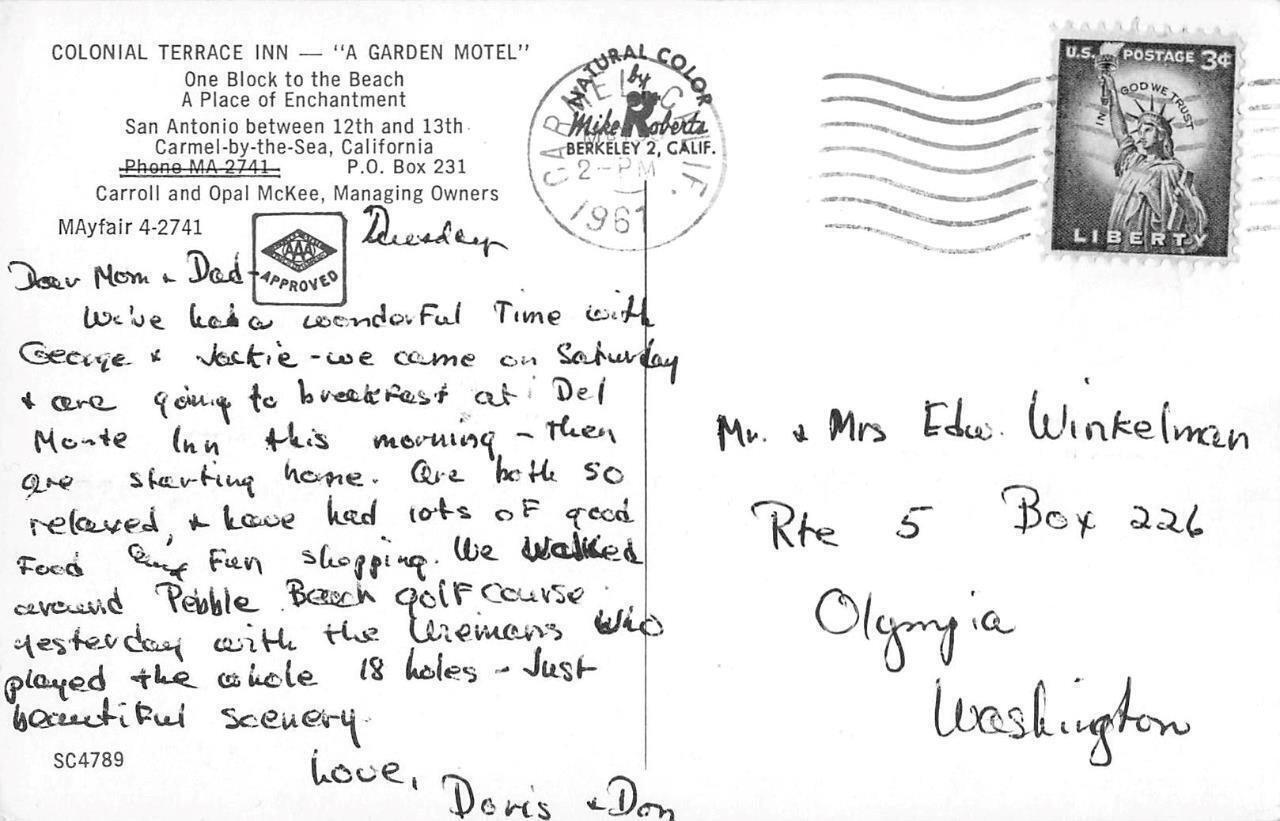 COLONIAL TERRACE INN — "A GARDEN MOTEL"
One Block to the Beach
A Place of Enchantment
San Antonio between 12th and 13th
Carmel-by-the-Sea, California
Phone MA-2741 P.O. Box 231
Carroll and Opal McKee, Managing Owners
MAyfair 4-2741
AAA
APPROVED
Tuesday
Dear Mom & Dad-
We've had a wonderful Time with
George & Jackie - we came on Saturday
& are going to breakfast at Del
Monte Inn this morning - then
are starting home. Are both so
relaxed, & have had lots of good
Food and Fun shopping. We walked
around Pebble Beach golf course
yesterday with the who
played the whole 18 holes - Just
beautiful scenery.
Love,
Doris & Don
SC4789
NATURAL COLOR
by
Mike Roberts
BERKELEY 2, CALIF.
CARMEL, CALIF.
2-PM
1961
U.S. POSTAGE 3¢
IN GOD WE TRUST
LIBERTY
Mr. & Mrs Edw. Winkelman
Rte 5 Box 226
Olympia
Washington